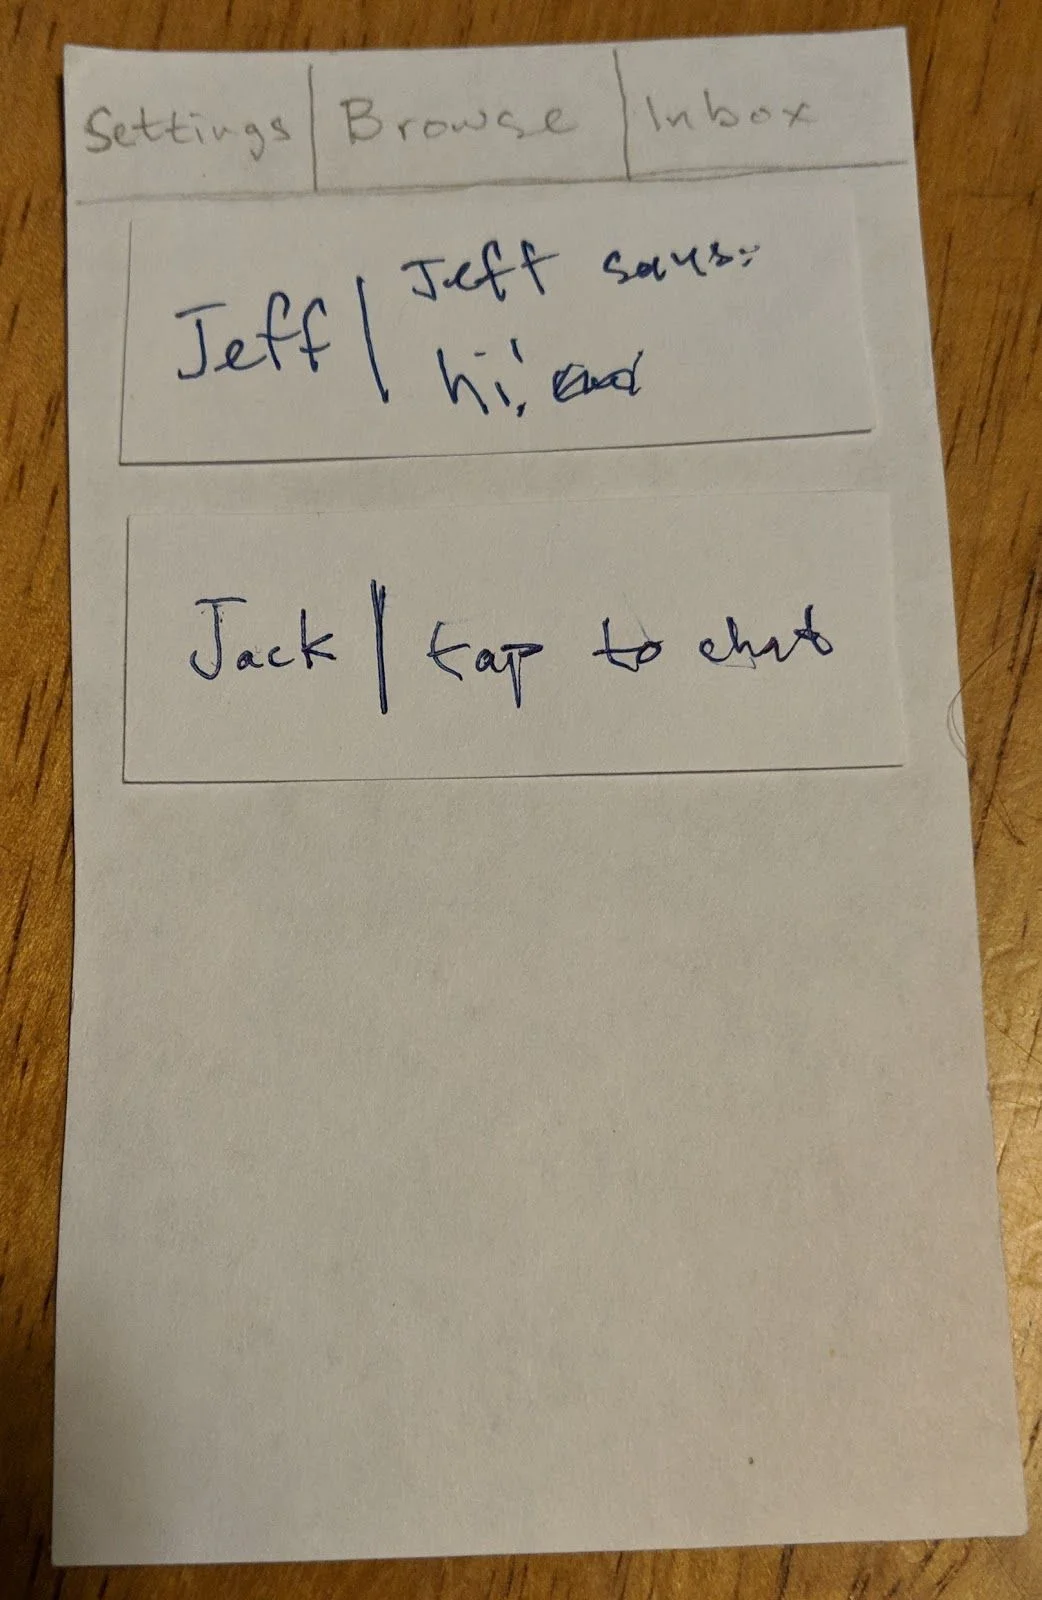 Settings | Browse | Inbox
Jeff | Jeff says:
hi!
Jack | tap to chat